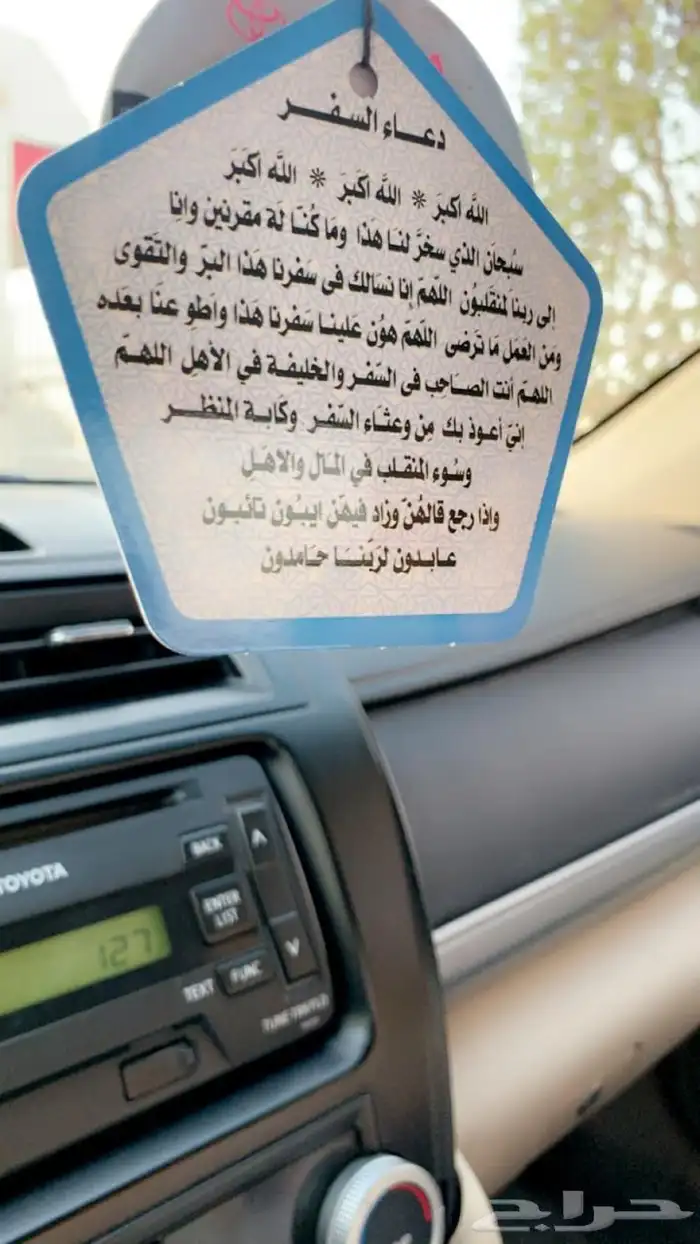 دعاء السفر
الله اكبر * الله اكبر * الله اكبر
سُبحان الذي سخَّر لنا هَذا ومَا كُنّا لَهُ مقرنين وانا
إلى ربنا لمنقلبُون اللهُمّ إنا نسَالك فى سَفرنا هَذا البرّ والتَقوى
ومَن العَمل مَا تَرضى اللهُمّ هوّن عَلينا سَفرنا هَذا وأطو عنّا بعَده
اللهمّ أنت الصَاحِب فى السَفر والخليفة في الأهلِ اللهمّ
إنيّ أعوذ بك مِن وعثَاء السَفر وكَابة المنظر
وسُوء المنقلب في المال والاهل
واذا رجع قالهُنّ وزاد فيهّن ايبُون تائبون
عابدون لربّنا حَامدون
BACK
TOYOTA
ENTER
LIST
127
TEXT
FUNC
TUNE/TRAVEL
حراج